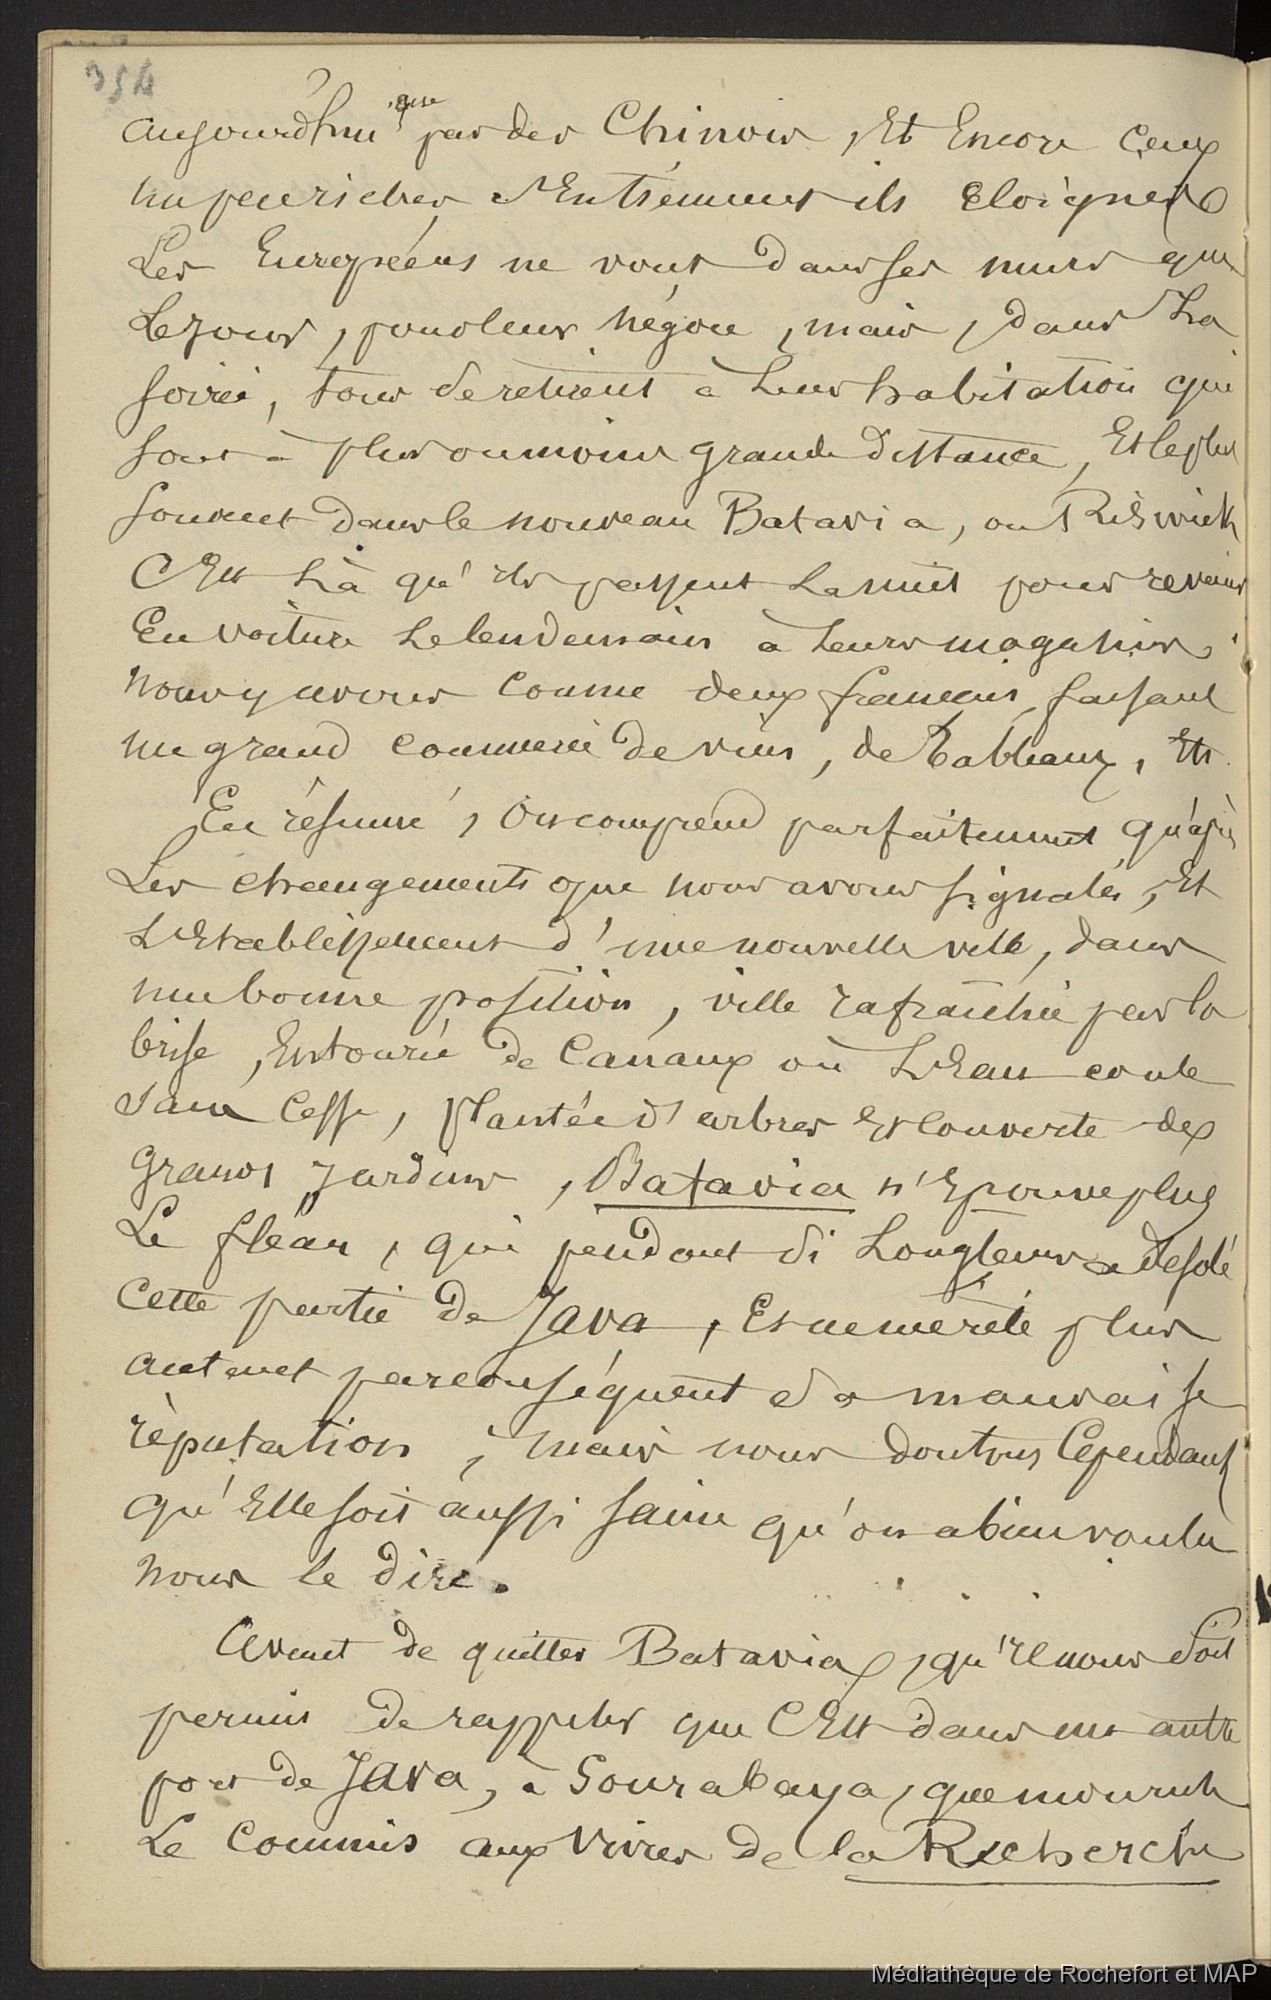 354
aujourd'hui que par des Chinois, Et Encore Ceux
un peu riches s'En tiennent ils éloignés
Les Européens ne vont dans ses murs que
Le jour, pour leur négoce, mais, dans La
soirée, tous se retirent à Leur habitation qui
sont à plus ou moins grande distance, Et le plus
souvent dans le nouveau Batavia, ou Riswick
C'Est Là qu'ils passent La nuit pour revenir
En voiture Le lendemain à Leurs magasins,
nous y avons connu deux francais faisant
un grand commerce de vins, de Tableaux, Etc.
En résumé, On comprend parfaitement qu'après
Les changements que nous avons signalés, Et
L'Etablissement d'une nouvelle ville, dans
une bonne position, ville rafraichie par la
brise, Entourée de Canaux où L'Eau coule
sans Cesse, plantée d'arbres Et couverte des
grands jardins, Batavia n'Eprouve plus
Le fléau, qui pendant si Longtems a désolé
Cette partie de Java, Et ne mérite plus
autant par conséquent sa mauvaise
réputation, mais nous doutons Cependant
qu'Elle soit aussi saine qu'on a bien voulu
nous le dire.
Avant de quitter Batavia, qu'il nous soit
permis de rappeler que C'Est dans un autre
port de Java, à Sourabaya, que mourut
Le Commis aux Vivres de la Recherche
Médiathèque de Rochefort et MAP